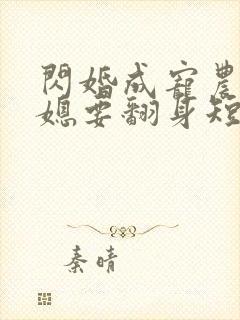 閃婚成寵農
媳要翻身短
秦晴